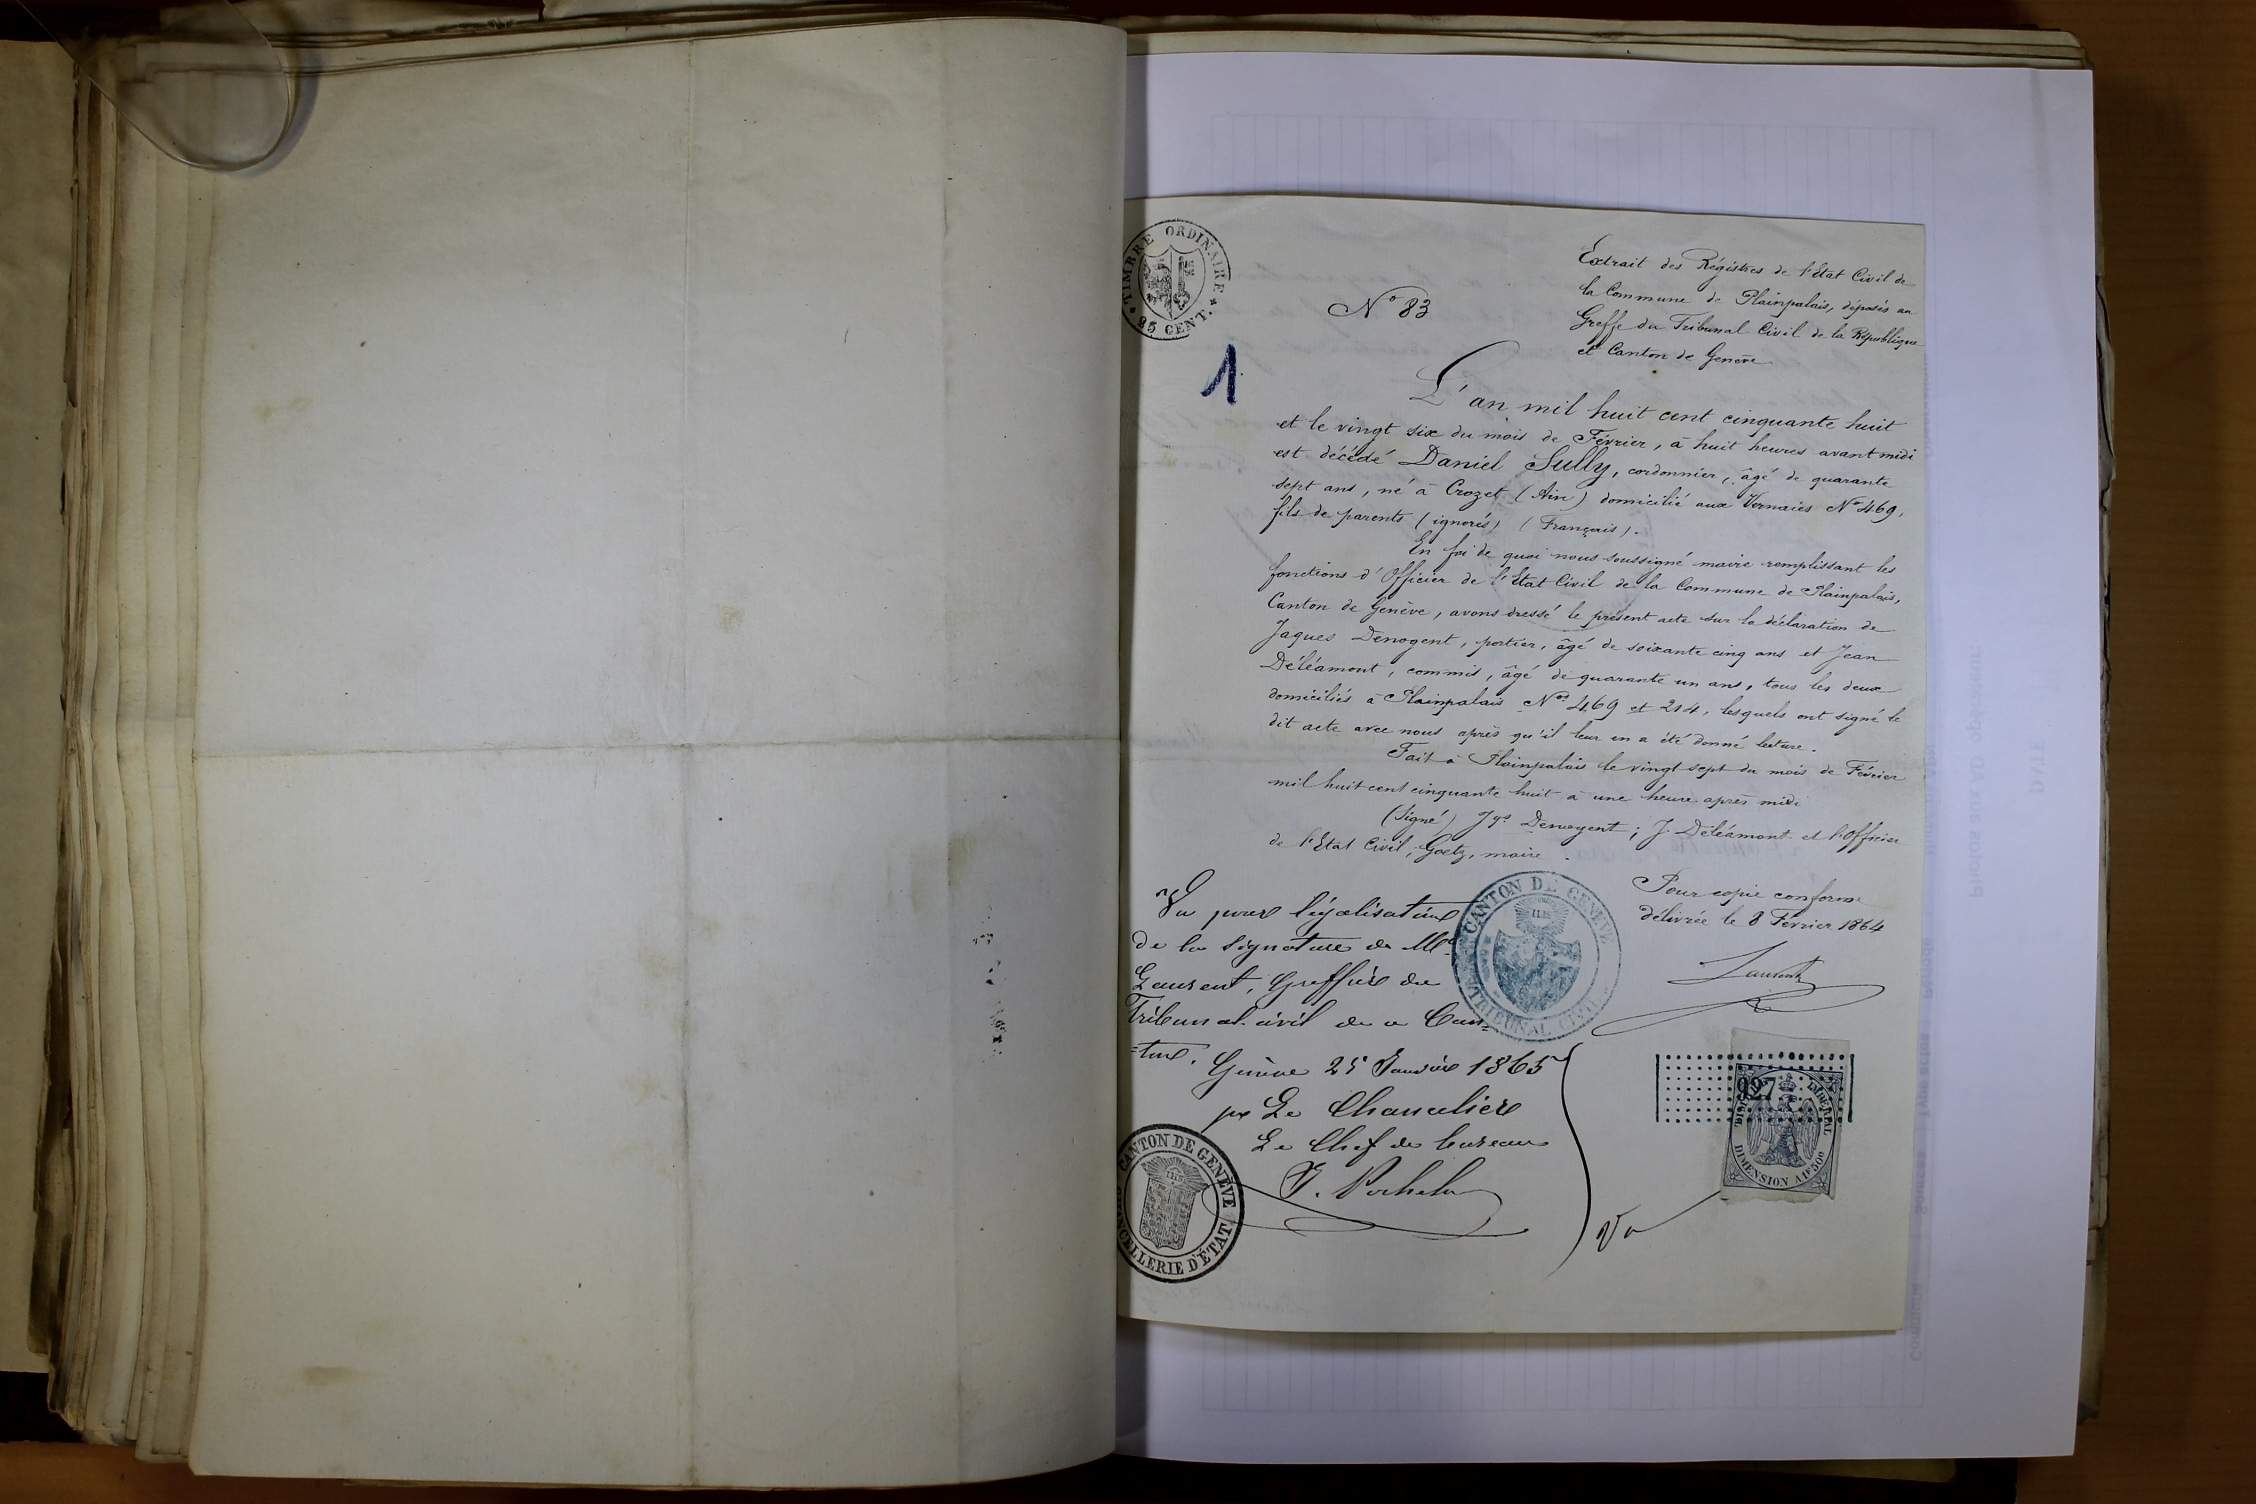 TIMBRE ORDINAIRE
25 CENT.
Nº 83
1
Extrait des Registres de l'Etat Civil de
la Commune de Plainpalais, déposés au
Greffe du Tribunal Civil de la République
et Canton de Genève
L'an mil huit cent cinquante huit
et le vingt six du mois de Février, à huit heures avant midi
est décédé Daniel Sully, cordonnier, âgé de quarante
sept ans, né à Crozet (Ain) domicilié aux Vernaies Nº 469,
fils de parents (ignorés) (Français).
En foi de quoi nous soussigné maire remplissant les
fonctions d'Officier de l'Etat Civil de la Commune de Plainpalais,
Canton de Genève, avons dressé le présent acte sur la déclaration de
Jaques Denogent, portier, âgé de soixante cinq ans et Jean
Déléamont, commis, âgé de quarante un ans, tous les deux
domiciliés à Plainpalais Nos 469 et 214, lesquels ont signé le
dit acte avec nous après qu'il leur en a été donné lecture.
Fait à Plainpalais le vingt sept du mois de Février
mil huit cent cinquante huit à une heure après midi
(Signé) Jqs Denogent; J. Déléamont et l'Officier
de l'Etat Civil, Goetz, maire.
Pour copie conforme
délivrée le 8 Février 1864
Laurent
Vu pour légalisation
de la signature de Mr.
Laurent, Greffier du
Tribunal civil de ce Can=
=ton.
Genève 25 Janvier 1865
pr Le Chancelier
Le Chef de bureau
CANTON DE GENÈVE
TRIBUNAL CIVIL
CANTON DE GENÈVE
CHANCELLERIE D'ÉTAT
Vu
927
IMPÉRIAL
DIMENSION A 1F 50c